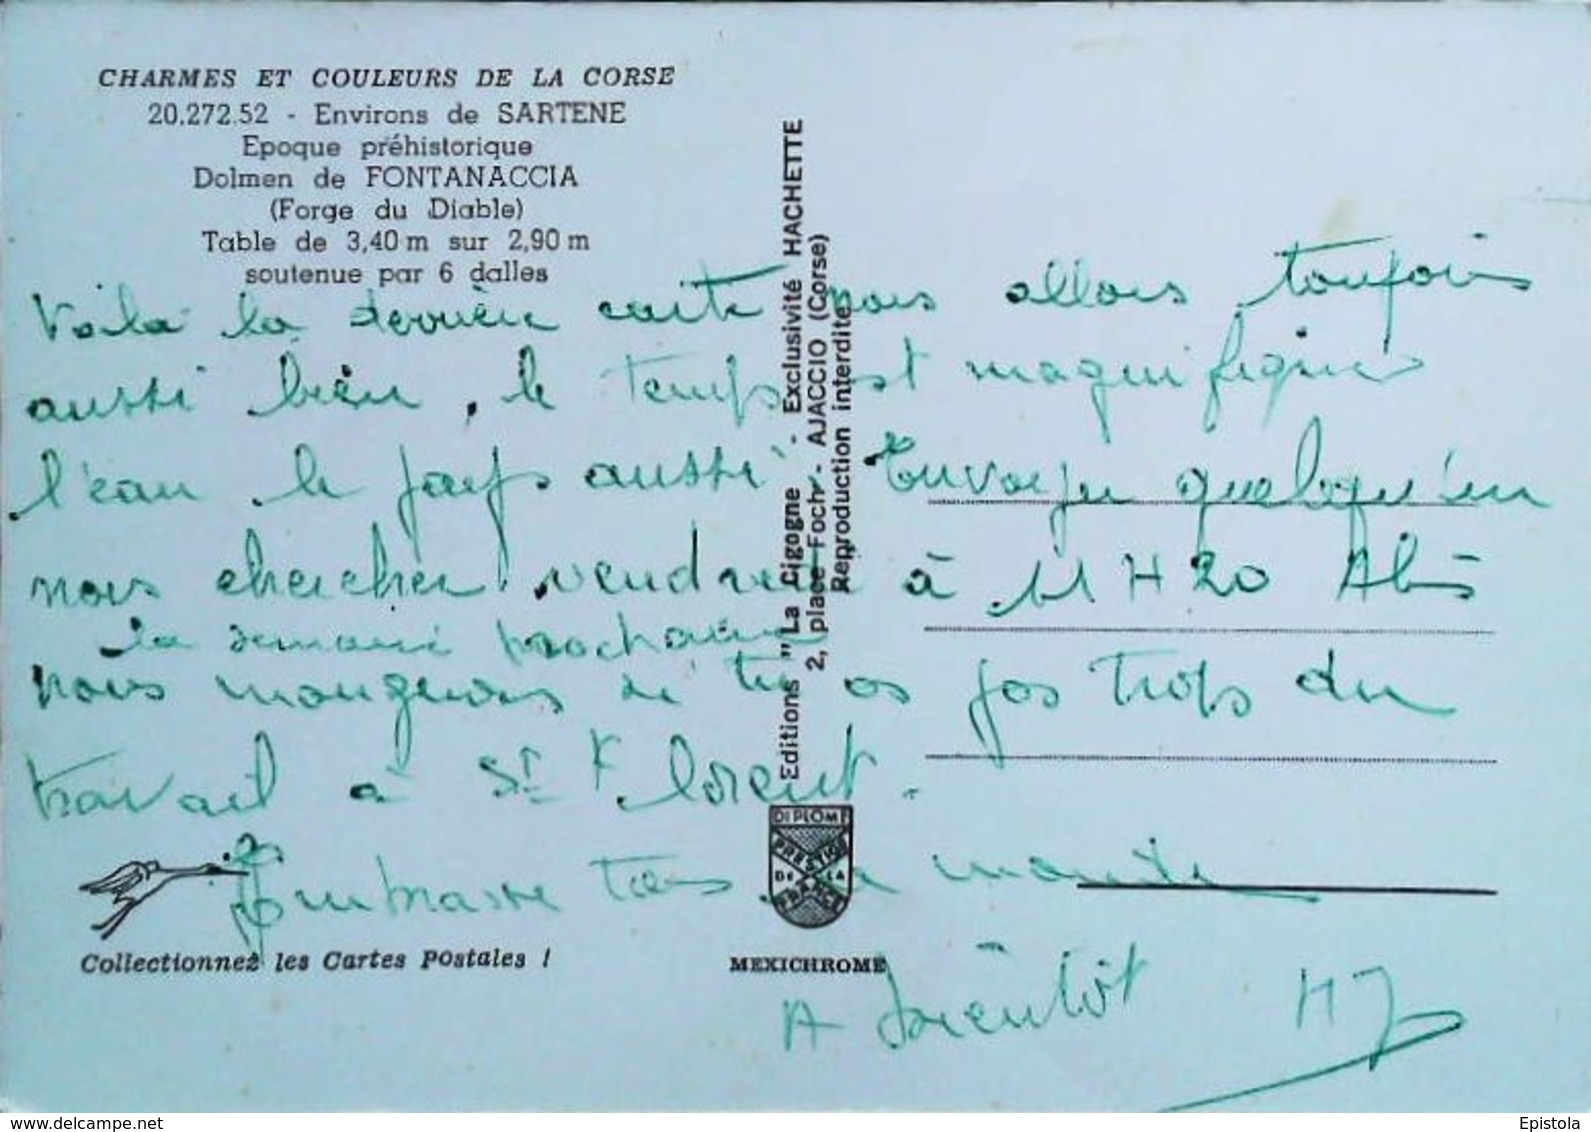 CHARMES ET COULEURS DE LA CORSE
20.272.52 - Environs de SARTENE
Epoque préhistorique
Dolmen de FONTANACCIA
(Forge du Diable)
Table de 3,40 m sur 2,90 m
soutenue par 6 dalles
Voila la dernière carte nous allons toujours
aussi bien, le temps est magnifique
l'eau le pays aussi Envoyer quelqu'un
nous chercher vendredi à 11 H 20
la semaine prochaine
nous mangerons tu as pas trops du
travail à St Florent.
Embrasse tous la monde
A bientôt HJ
Editions "La Cigogne" - Exclusivité HACHETTE
2, place Foch - AJACCIO (Corse)
Reproduction interdite
DIPLOME
PRESTIGE
DE LA
FRANCE
Collectionnez les Cartes Postales !
MEXICHROME
delcampe.net
Epistola